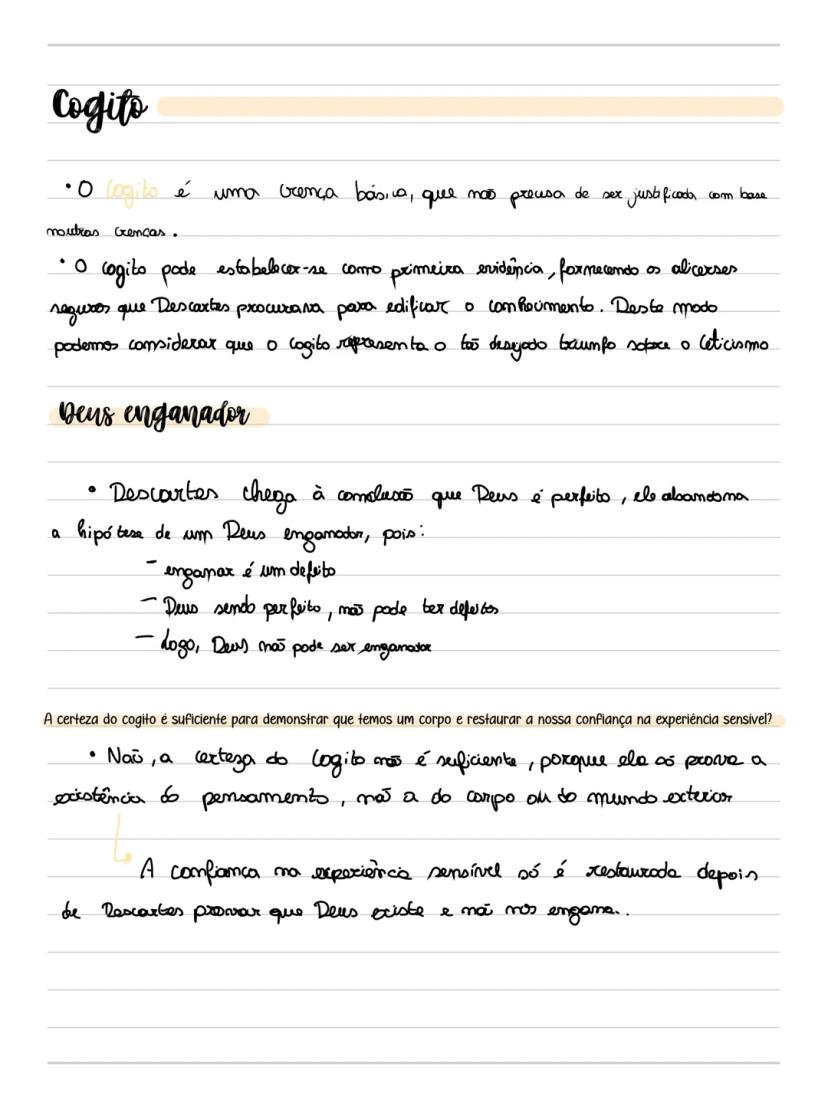 Cogito
• O Cogito é uma crença básica, que não precisa de ser justificada com base
noutras crenças.
• O cogito pode estabelecer-se como primeira evidência, fornecendo os alicerses
seguros que Descartes procurava para edificar o conhecimento. Deste modo
podemos considerar que o Cogito representa o tão desejado triunfo sobre o Ceticismo
Deus enganador
• Descartes chega à conclusão que Deus é perfeito, ele abandona
a hipótese de um Deus enganador, pois:
- enganar é um defeito
- Deus sendo perfeito, não pode ter defeitos
- Logo, Deus não pode ser enganador
A certeza do cogito é suficiente para demonstrar que temos um corpo e restaurar a nossa confiança na experiência sensível?
• Não, a certeza do Cogito não é suficiente, porque ela só prova a
existência do pensamento, não a do corpo ou do mundo exterior
A confiança na experiência sensível só é restaurada depois
de Descartes provar que Deus existe e não nos engana..